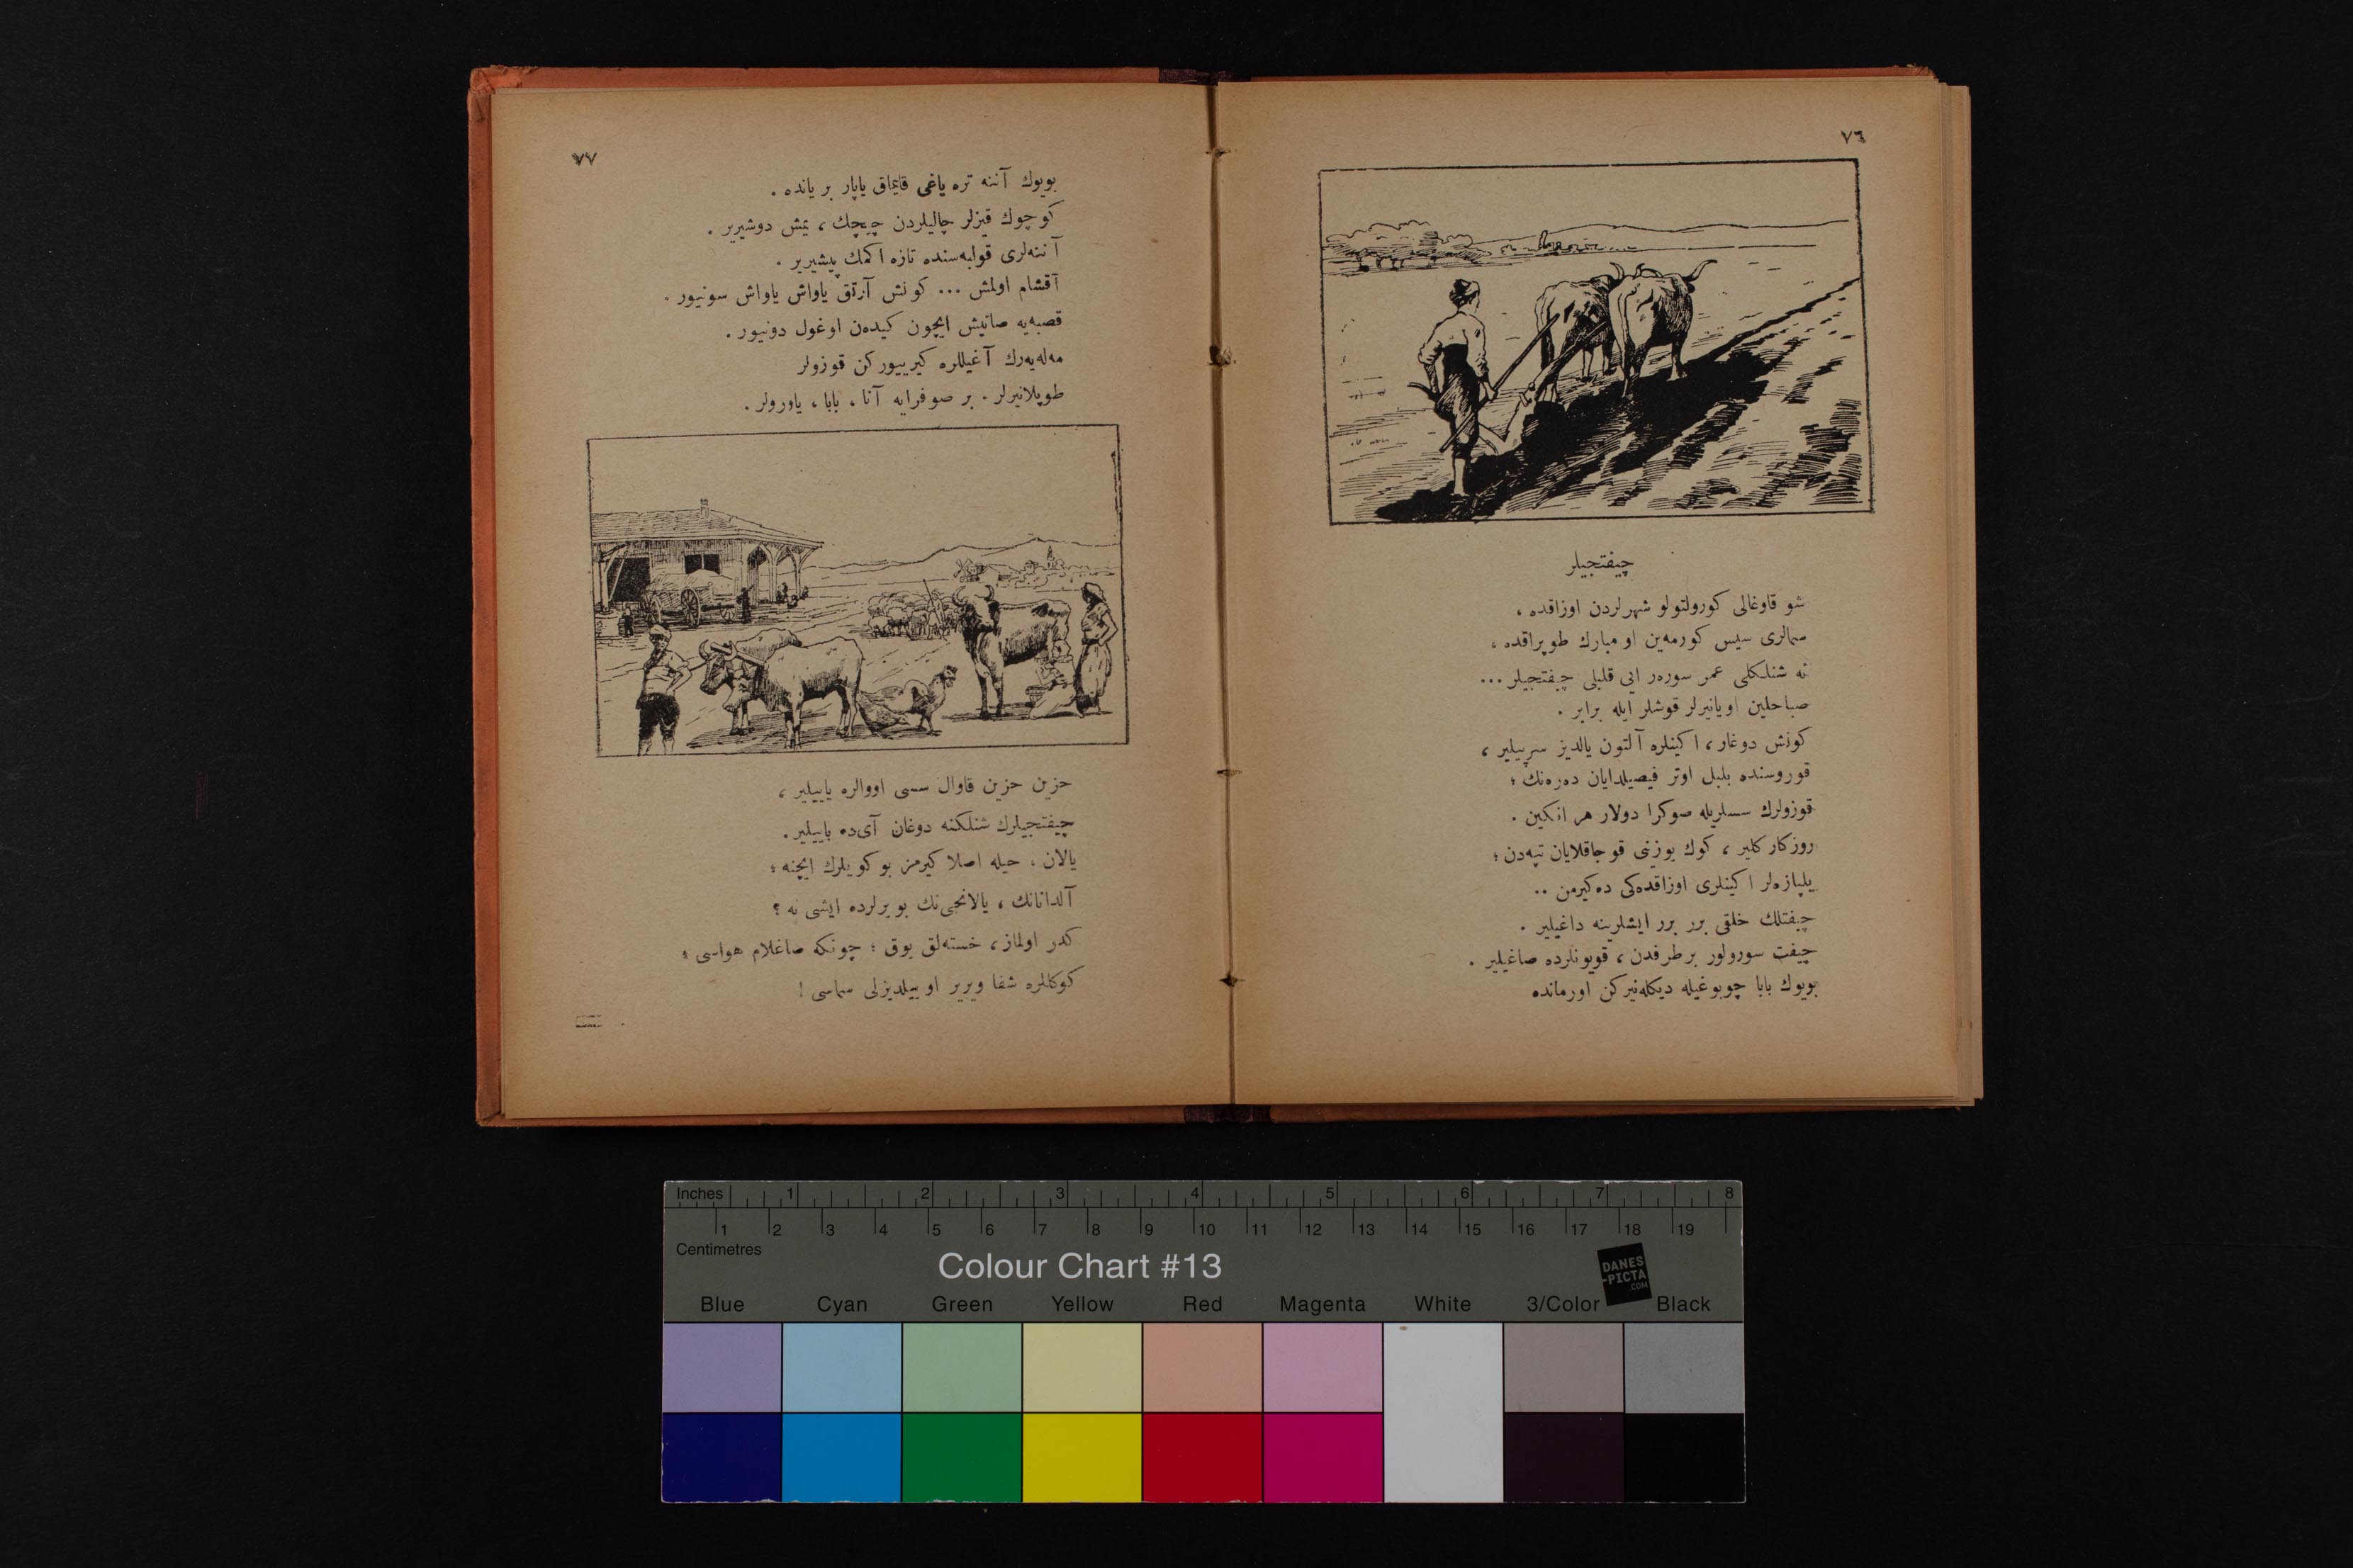 ٧٦
چیفتجیلر
شو قاوغالی كورولتولو شهرلردن اوزاقده ،
سمالری سیس كورمه‌ین او مبارك طوپراقده ،
نه شنلكلی عمر سوره‌ر ایی قلبلی چیفتجیلر ...
صباحلین اویانیرلر قوشلر ایله برابر .
كونش دوغار ، اكینلره آلتون یالدیز سرپیلیر ،
قوروسنده بلبل اوتر فیصیلدایان ده‌ره‌نك ؛
قوزولرك سسلریله صوكرا دولار هر انكین .
روزكار كلیر ، كوك یوزنی قوجاقلایان تپه‌دن ؛
یلپازه‌لر اكینلری اوزاقده‌كی ده‌كیرمن ..
چیفتلك خلقی برر برر ایشلرینه داغیلیر .
چیفت سورولور بر طرفدن ، قویونلرده صاغیلیر .
بویوك بابا چوبوغیله دیكله‌نیركن اورمانده
٧٧
بویوك آننه تره یاغی قایماق یاپار بر یانده .
كوچوك قیزلر چالیلردن چیچك ، یمش دوشیریر .
آننه‌لری قولبه‌سنده تازه اكمك پیشیریر .
آقشام اولمش ... كونش آرتق یاواش یاواش سونیور .
قصبه‌یه صاتیش ایچون كیده‌ن اوغول دونیور .
مه‌له‌یه‌رك آغیللره كیرییوركن قوزولر
طوپلانیرلر . بر صوفرایه آنا ، بابا ، یاورولر .
حزین حزین قاوال سسی اووالره یاییلیر ،
چیفتجیلرك شنلكنه دوغان آی‌ده باییلیر .
یالان ، حیله اصلا كیرمز بو كویلرك ایچنه ؛
آلداتانك ، یالانجی‌نك بو یرلرده ایشی نه ؟
كدر اولماز ، خسته‌لق یوق ؛ چونكه صاغلام هواسی ؛
كوكللره شفا ویریر او ییلدیزلی سماسی !
Inches 1 2 3 4 5 6 7 8
1 2 3 4 5 6 7 8 9 10 11 12 13 14 15 16 17 18 19
Centimetres
Colour Chart #13
DANES
-PICTA
.COM
Blue Cyan Green Yellow Red Magenta White 3/Color Black